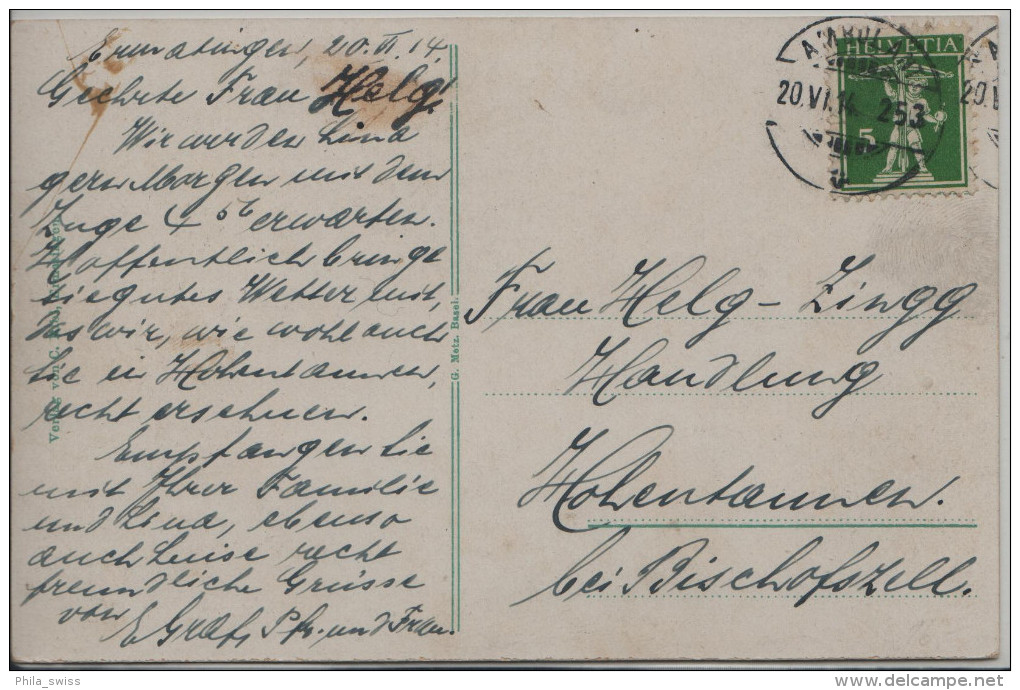 Ermatingen, 20. VI. 14.
Geehrte Frau Helg!
Wir werden Lina
gern Morgen mit dem
Zuge 4 56 erwarten.
Hoffentlich bringt
sie gutes Wetter mit,
das wir, wie wohl auch
Sie in Hohentannen,
recht ersehnen.
Empfangen Sie
mit Ihrer Familie
und Lina, ebenso
auch Luise recht
freundliche Grüsse
von
E Graf, Pfr. und Frau.
Verlag von C.
G. Metz, Basel.
AMBUL
20.VI.14 253
HELVETIA
5
20.V
Frau Helg-Zingg
Handlung
Hohentannen.
bei Bischofszell.
Phila_swiss
delcampe.net